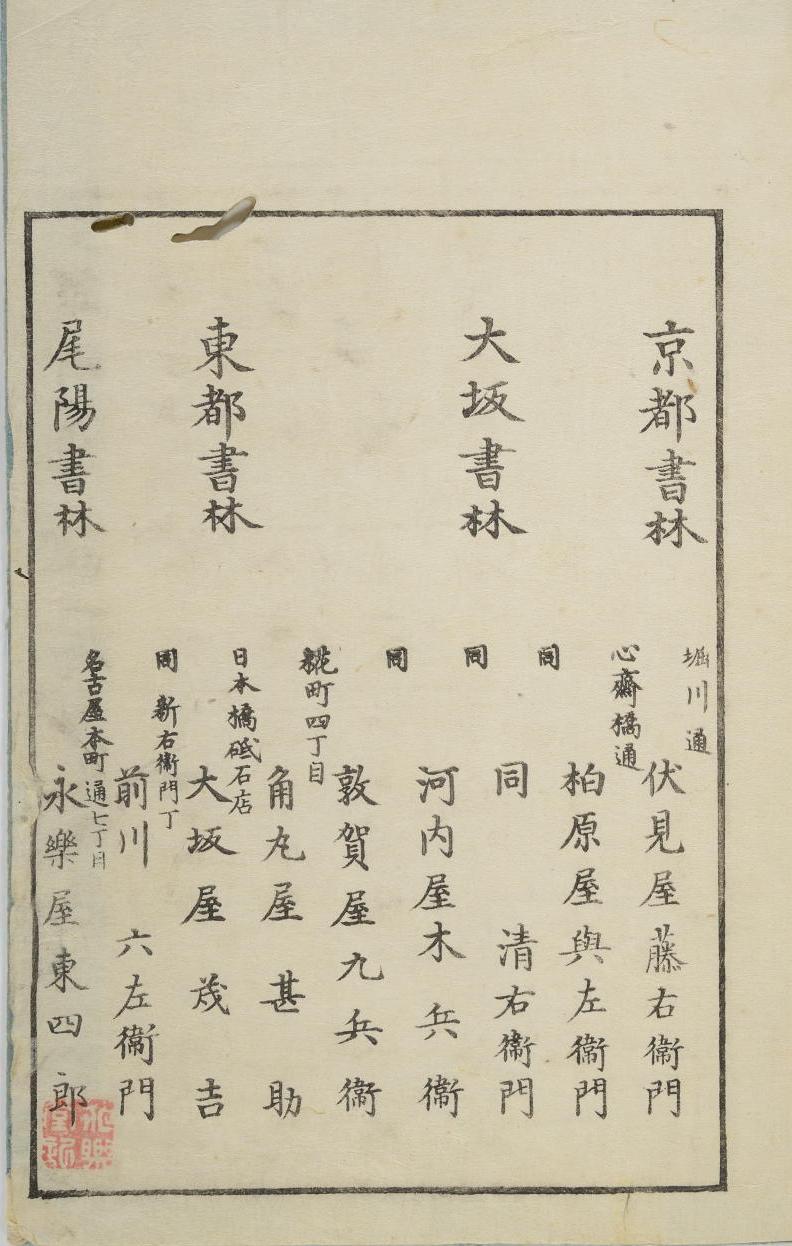 京都書林
堀川通
伏見屋藤右衞門
大坂書林
心齋橋通
柏原屋與左衞門
同
同 清右衞門
同
河内屋木兵衞
同
敦賀屋九兵衞
東都書林
糀町四丁目
角丸屋甚助
日本橋砥石店
大坂屋茂吉
同 新右衞門丁
前川六左衞門
尾陽書林
名古屋本町通七丁目
永樂屋東四郎